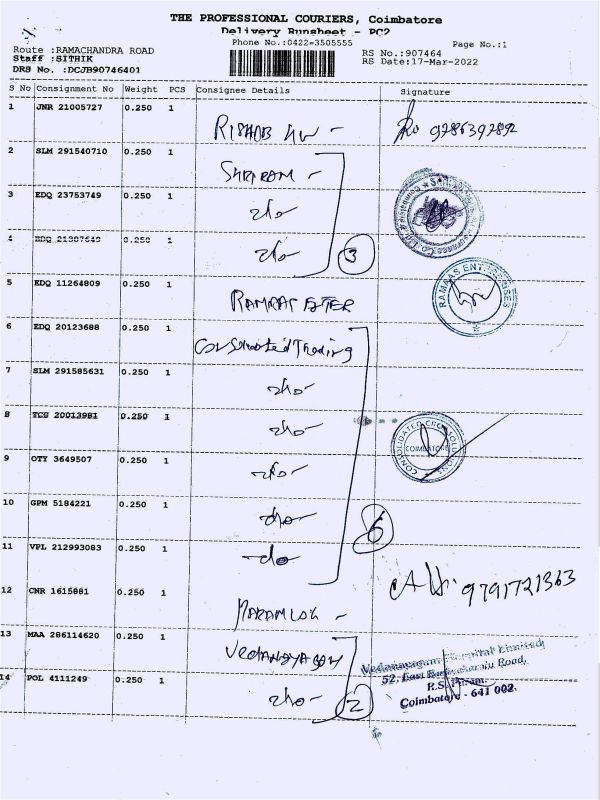 THE PROFESSIONAL COURIERS, Coimbatore
Delivery Runsheet - PC2
Phone No.:0422-3505555
Page No.:1
Route :RAMACHANDRA ROAD
RS No.:907464
Staff :SITHIK
RS Date:17-Mar-2022
DRS No. :DCJB90746401
S No Consignment No Weight PCS Consignee Details Signature
1 JNR 21005727 0.250 1 9786397892
2 SLM 291540710 0.250 1 SHRIRAM
3 EDQ 23753749 0.250 1 -do-
4 EDQ 21387649 0.250 1 -do- 3
5 EDQ 11264809 0.250 1 RAMAAS ENTER
RAMAAS ENTERPRISES
6 EDQ 20123688 0.250 1 Consolidated Trading
7 SLM 291585631 0.250 1 -do-
8 TCG 20013981 0.250 1 -do-
CONSOLIDATED
COIMBATORE
9 OTY 3649507 0.250 1 -do-
10 GPM 5184221 0.250 1 -do- 6
11 VPL 212993083 0.250 1 -do-
12 CNR 1615881 0.250 1 9791721363
13 MAA 286114620 0.250 1 VEDANAYAGAM
Vedanayagam Hospital Limited
52, East
R.S. Puram,
Coimbatore - 641 002.
14 POL 4111249 0.250 1 -do- 2